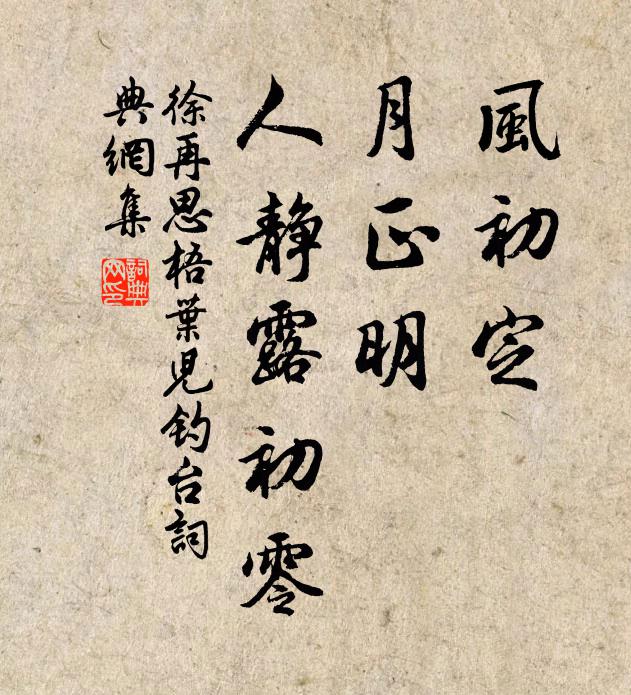 風初定
月正明
人靜露初零
徐再思梧葉兒釣台詞
典網集
詞典
网印